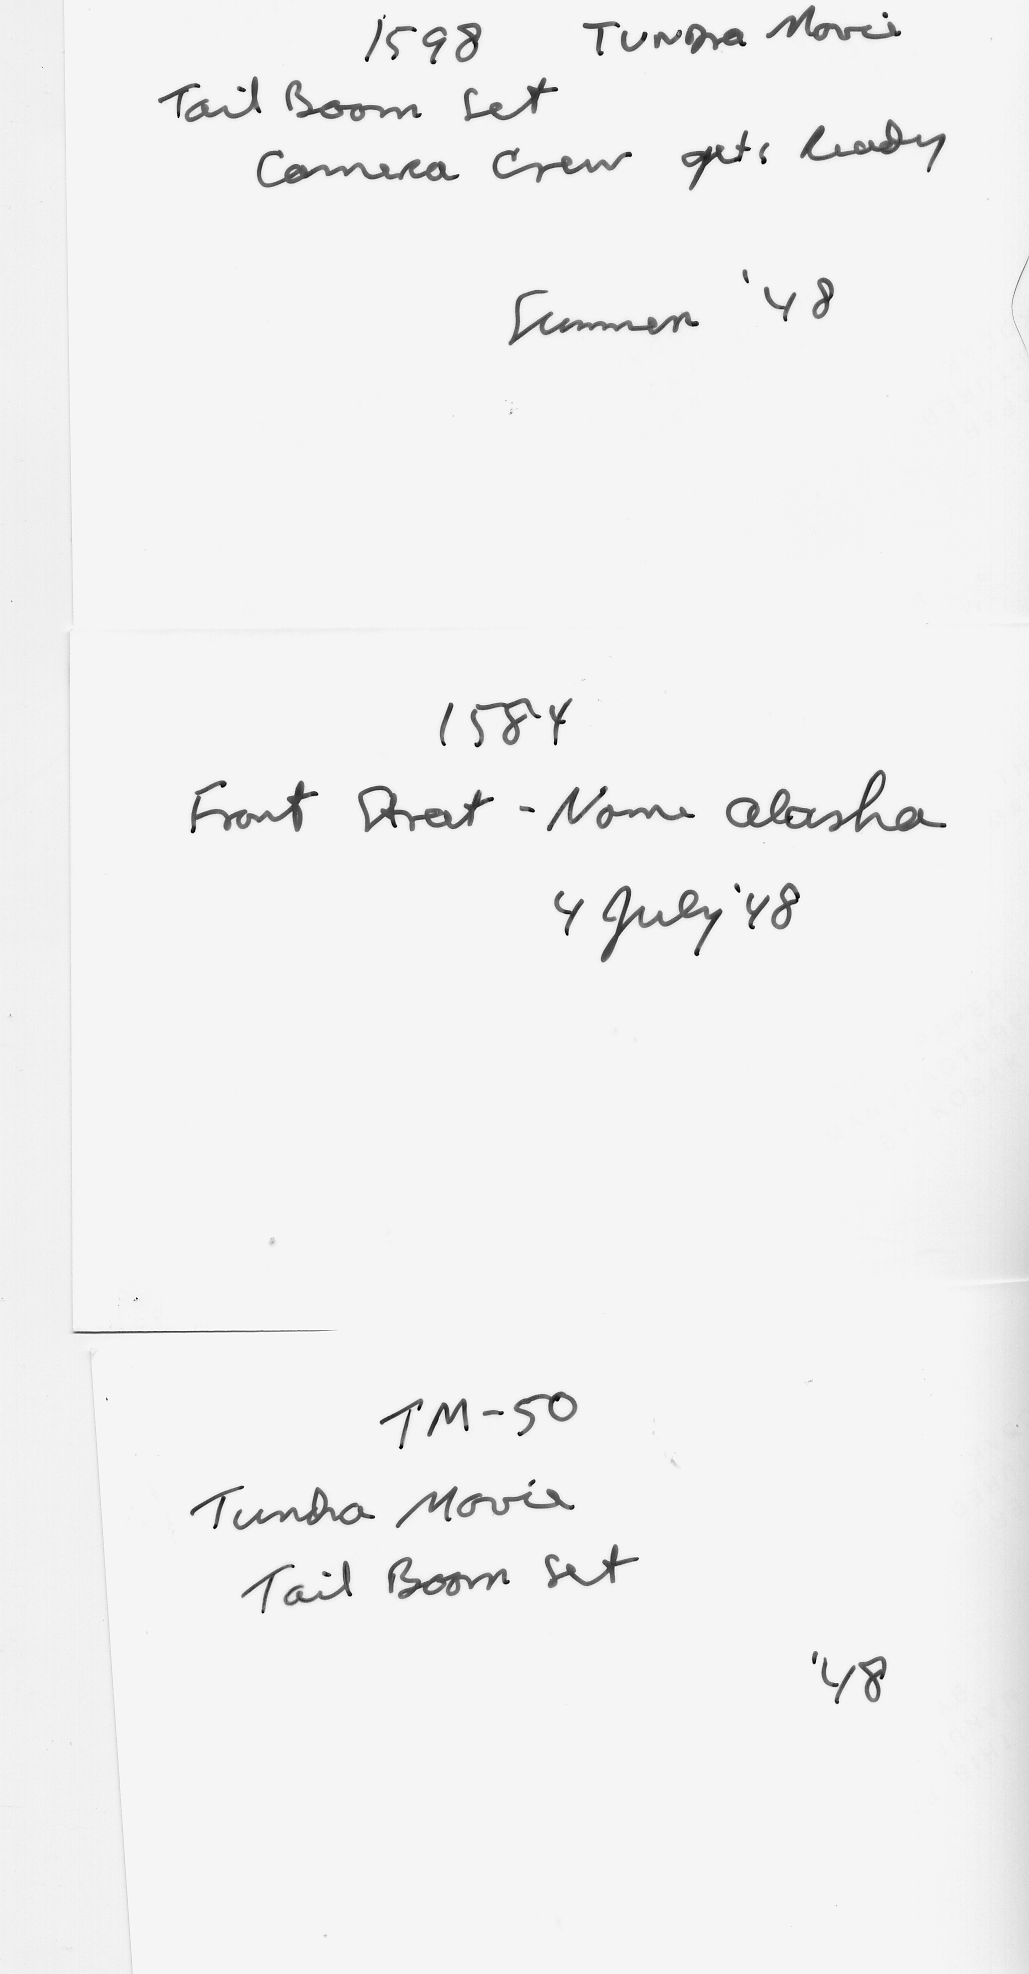 1598 Tundra Movie
Tail Boom Set
Camera Crew gets Ready
Summer '48
1584
Front Street - Nome Alaska
4 July '48
TM-50
Tundra Movie
Tail Boom Set
'48